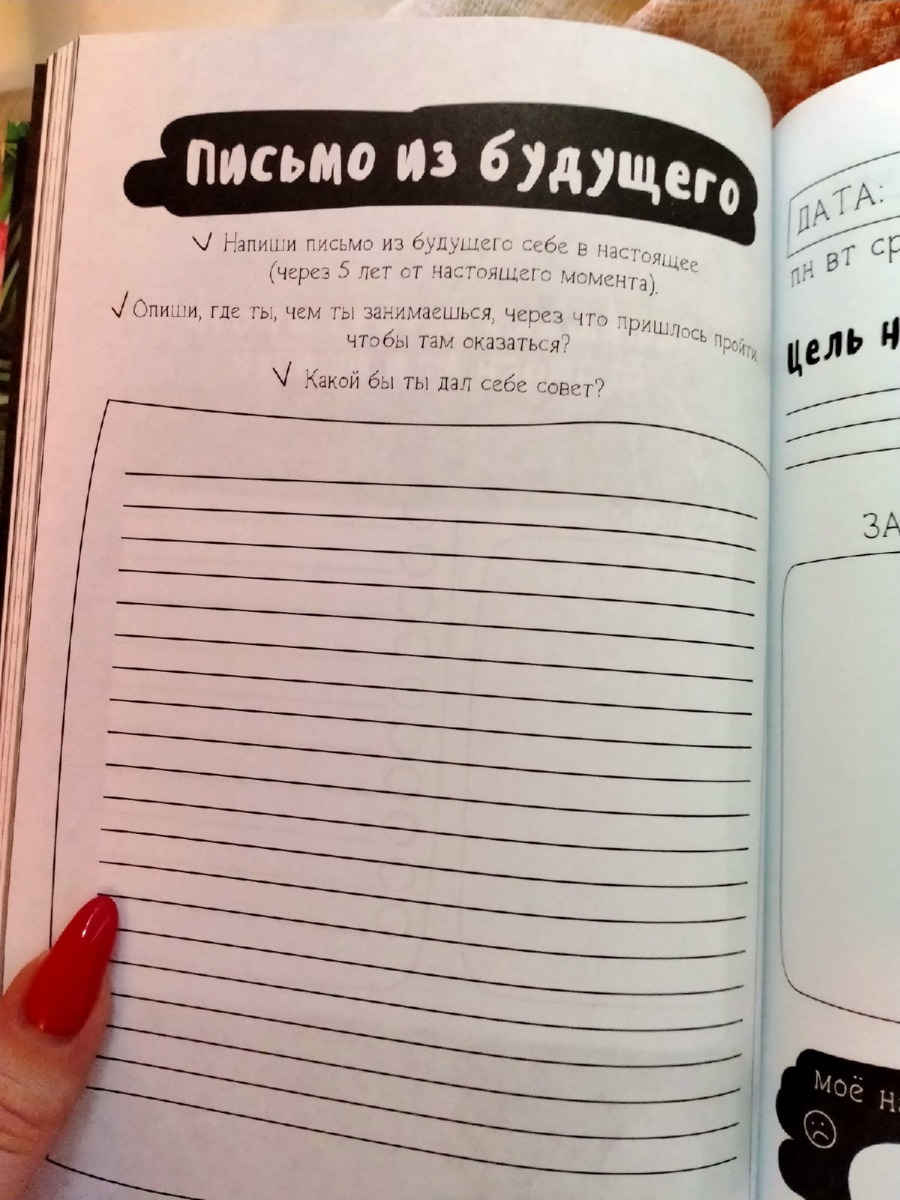 Письмо из будущего
Напиши письмо из будущего себе в настоящее
(через 5 лет от настоящего момента).
Опиши, где ты, чем ты занимаешься, через что пришлось пройти,
чтобы там оказаться?
Какой бы ты дал себе совет?
ДАТА:
ПН ВТ СР
Цель н
ЗА
МОЁ НА